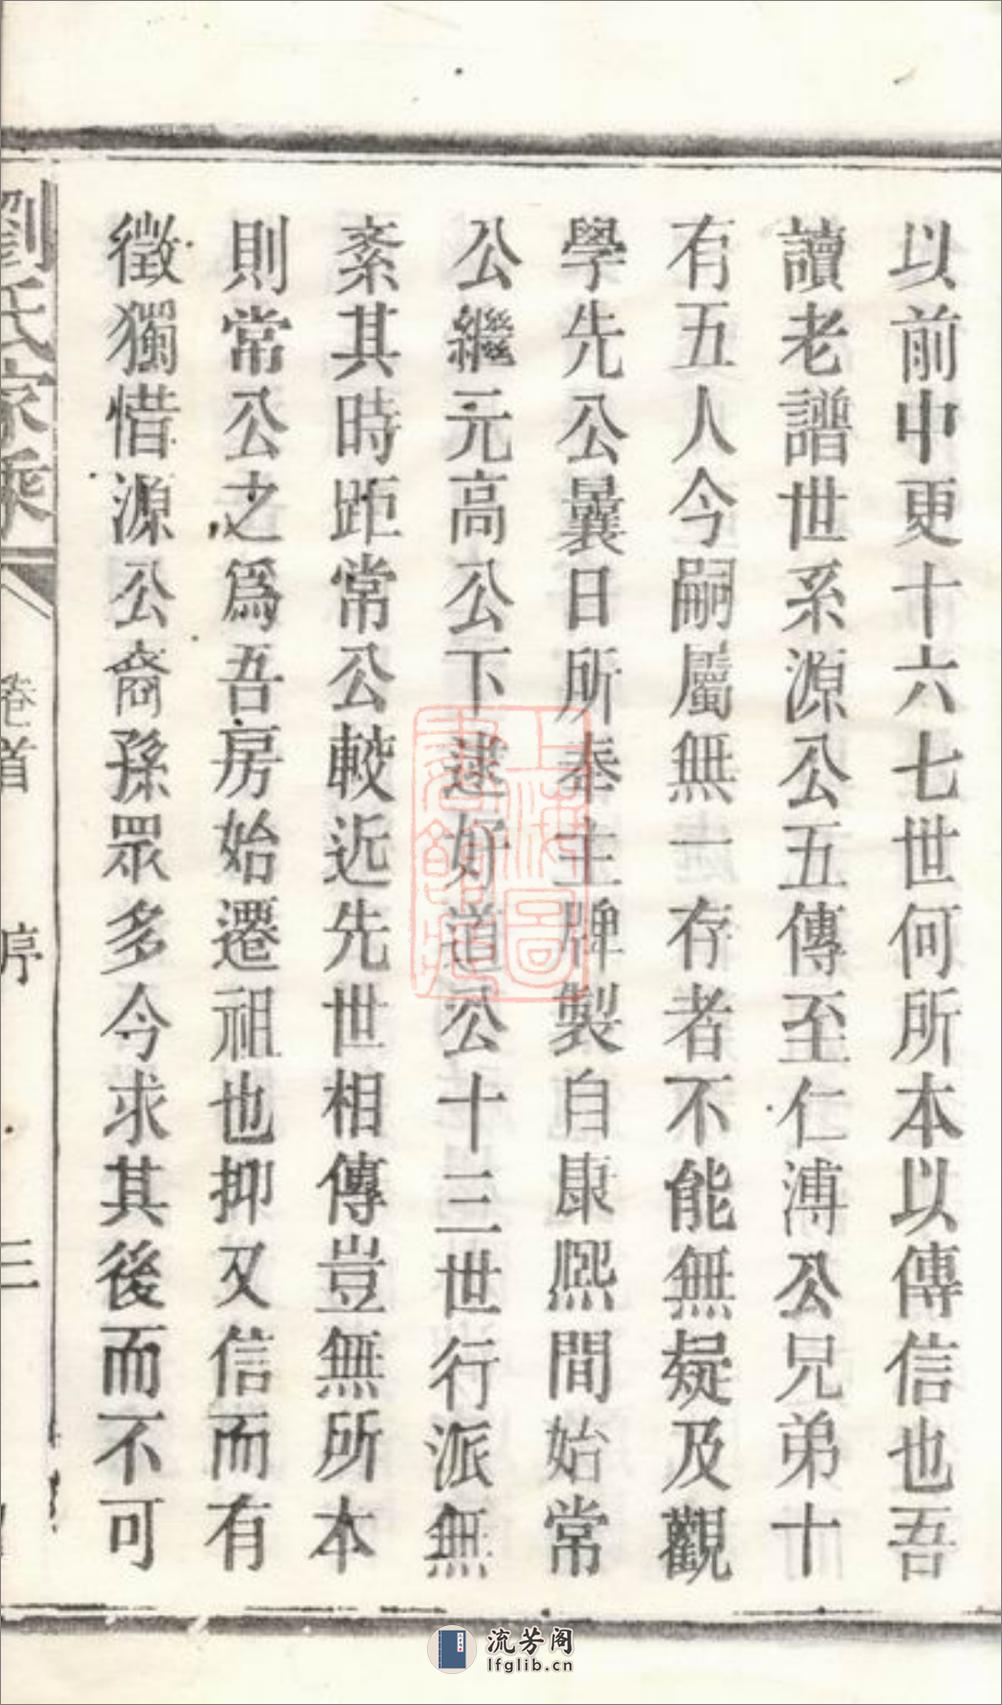 以前中更十六七世何所本以傳信也吾
讀老譜世系源公五傳至仁溥公兄弟十
有五人今嗣屬無一存者不能無疑及觀
學先公曩日所奉主牌製自康熙間始常
公繼元高公下逮好道公十三世行派無
紊其時距常公較近先世相傳豈無所本
則常公之爲吾房始遷祖也抑又信而有
徵獨惜源公裔孫眾多今求其後而不可
劉氏家乘
卷首
序
三
上海圖書館藏
流芳阁
lfglib.cn